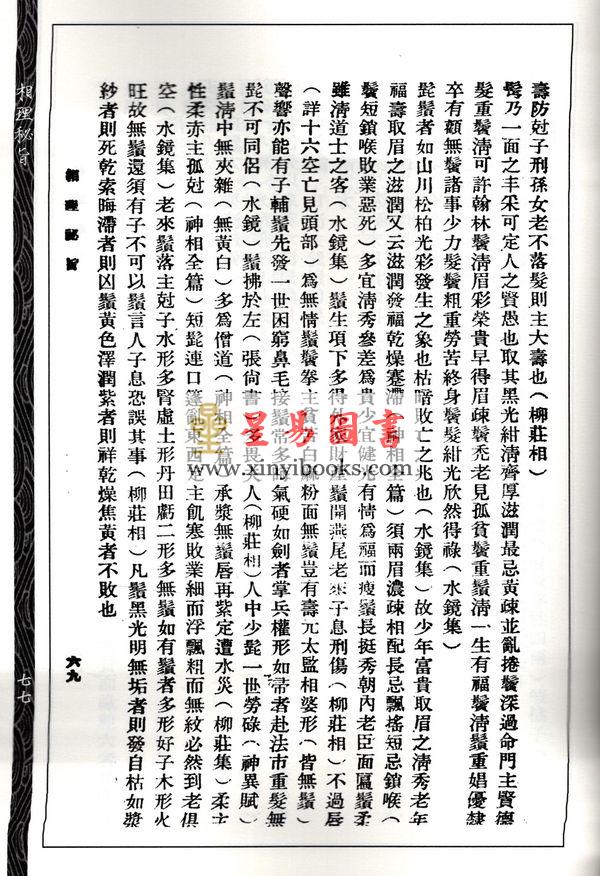 壽防尅子刑孫女老不落髮則主大壽也（柳莊相）
髩乃一面之丰采可定人之賢愚也取其黑光紺淸齊厚滋潤最忌黃疎並亂捲鬢深過命門主賢德
髮重鬢淸可許翰林鬢淸眉彩榮貴早得眉疎鬢禿老見孤貧鬢重鬚淸一生有福鬢淸鬚重娼優隸
卒有顧無鬢諸事少力髮鬢粗重勞苦終身鬢髮紺光欣然得祿（水鏡集）
髭鬚者如山川松柏光彩發生之象也枯暗敗亡之兆也（水鏡集）故少年富貴取眉之淸秀老年
福壽取眉之滋潤又云滋潤發福乾燥蹇滯神相全篇）須兩眉濃疎相配長忌飄搖短忌鎖喉（
鬢短鎖喉敗業惡死）多宜淸秀參差爲貴少宜健光有情爲福而瘦鬚長挺秀朝內老臣面匾鬚柔
雖淸道士之客（水鏡集）鬚生項下多得外財產鬚開燕尾老來子息刑傷（柳莊相）不過唇
（詳十六空亡見頭部）爲無情鬚鬢拳主貧苦白麻粉面無鬚豈有壽元太監相婆形（皆無鬚）
聲響亦能有子輔鬚先發一世困窮鼻毛接鬚常多晦氣硬如劍者掌兵權形如帚者赴法市重髮無
髭不可同侶（水鏡）鬚拂於左（張尙書）多畏夫人（柳莊相）人中少髭一世勞碌（神異賦）
鬚淸中無夾雜（無黃白）多爲僧道（神相全篇）承漿無鬚唇再紫定遭水災（柳莊集）柔主
性柔亦主孤尅（神相全篇）短髭連口篷鬆東西定主飢寒敗業細而浮飄粗而無紋必然到老俱
空（水鏡集）老來鬚落主尅子水形多腎虛土形丹田虧二形多無鬚如有鬚者多形好子木形火
旺故無鬚還須有子不可以鬚言人子息恐誤其事（柳莊相）凡鬚黑光明無垢者則發自枯如漿
紗者則死乾索晦滯者則凶鬚黃色澤潤紫者則祥乾燥焦黃者不敗也
相理秘旨
六九
相理秘旨
七七
星易圖書
www.xinyibooks.com